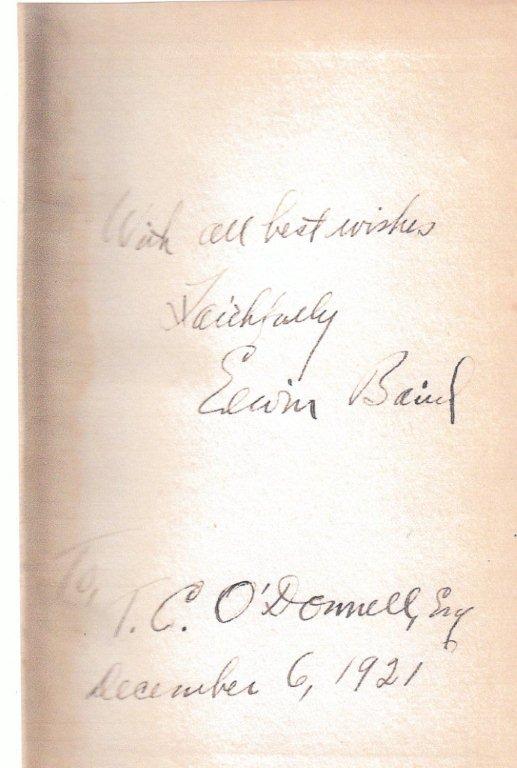 With all best wishes
Faithfully
Edwin Baird
To,
T. C. O'Donnell, Esq
December 6, 1921